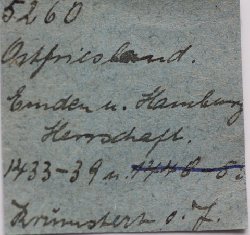 5260
Ostfriesland.
Emden u. Hamburg
Herrschaft.
1433-39 u. 1446-5
Krumstert o. J.